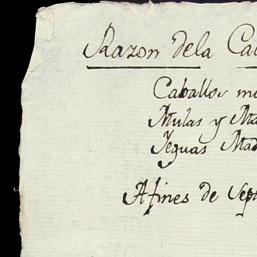 Razon dela Cab
Caballos m
Mulas y Ma
Yeguas Mad
Afines de Sep